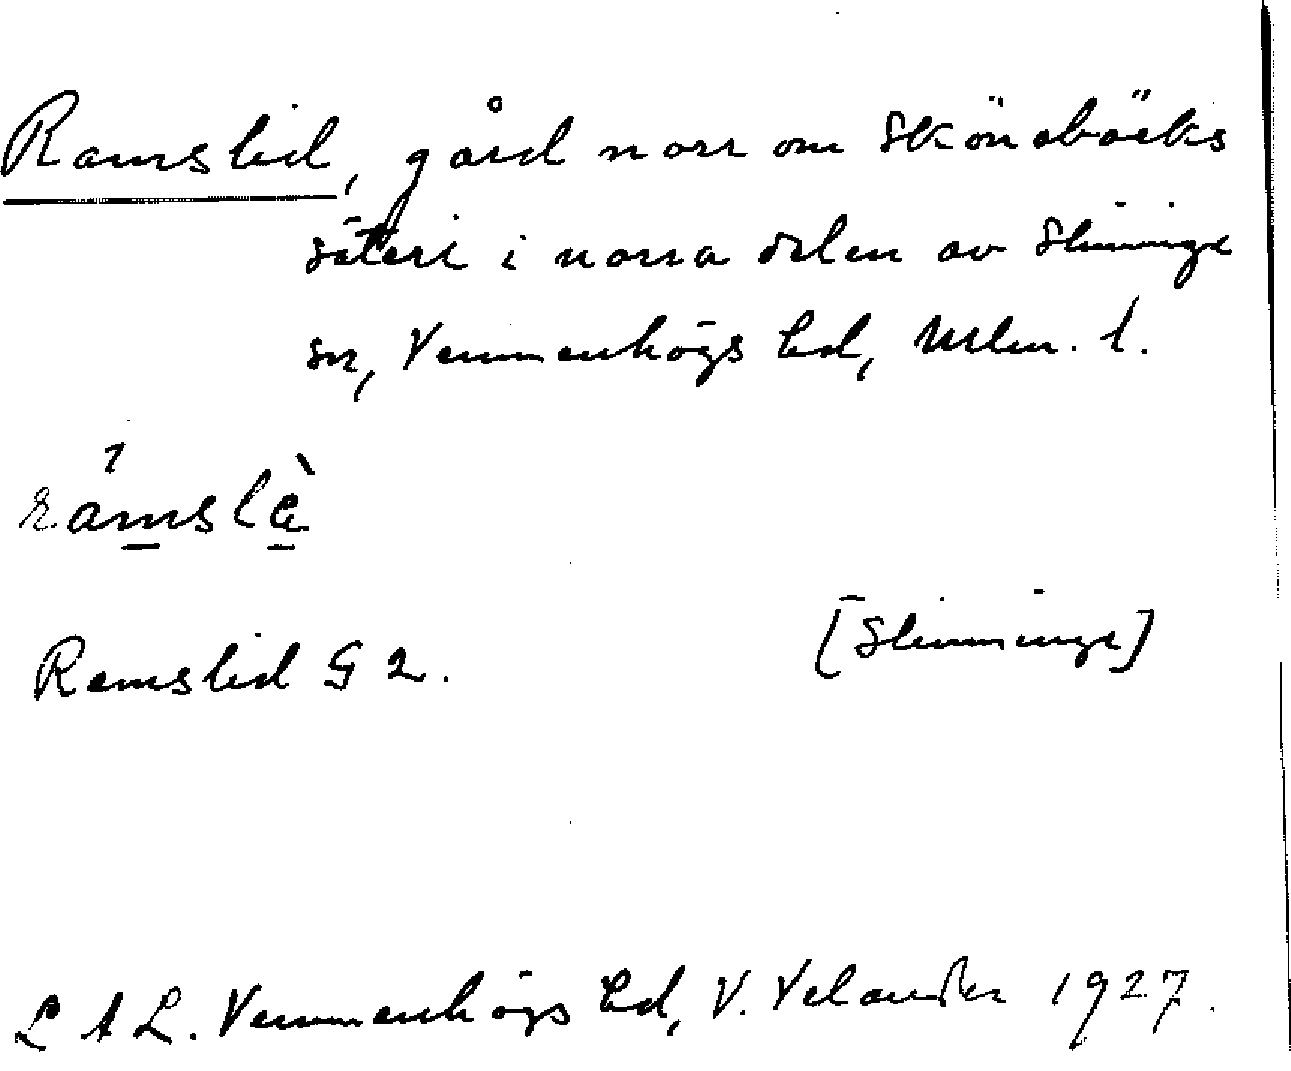 Ramslid, gård norr om Skönabäcks
säteri i norra delen av Slimminge
sn, Vemmenhögs hd, Mlm. l.
Ramslid G 2.
[Slimminge]
L A L. Vemmenhögs hd, V. Velander 1927.